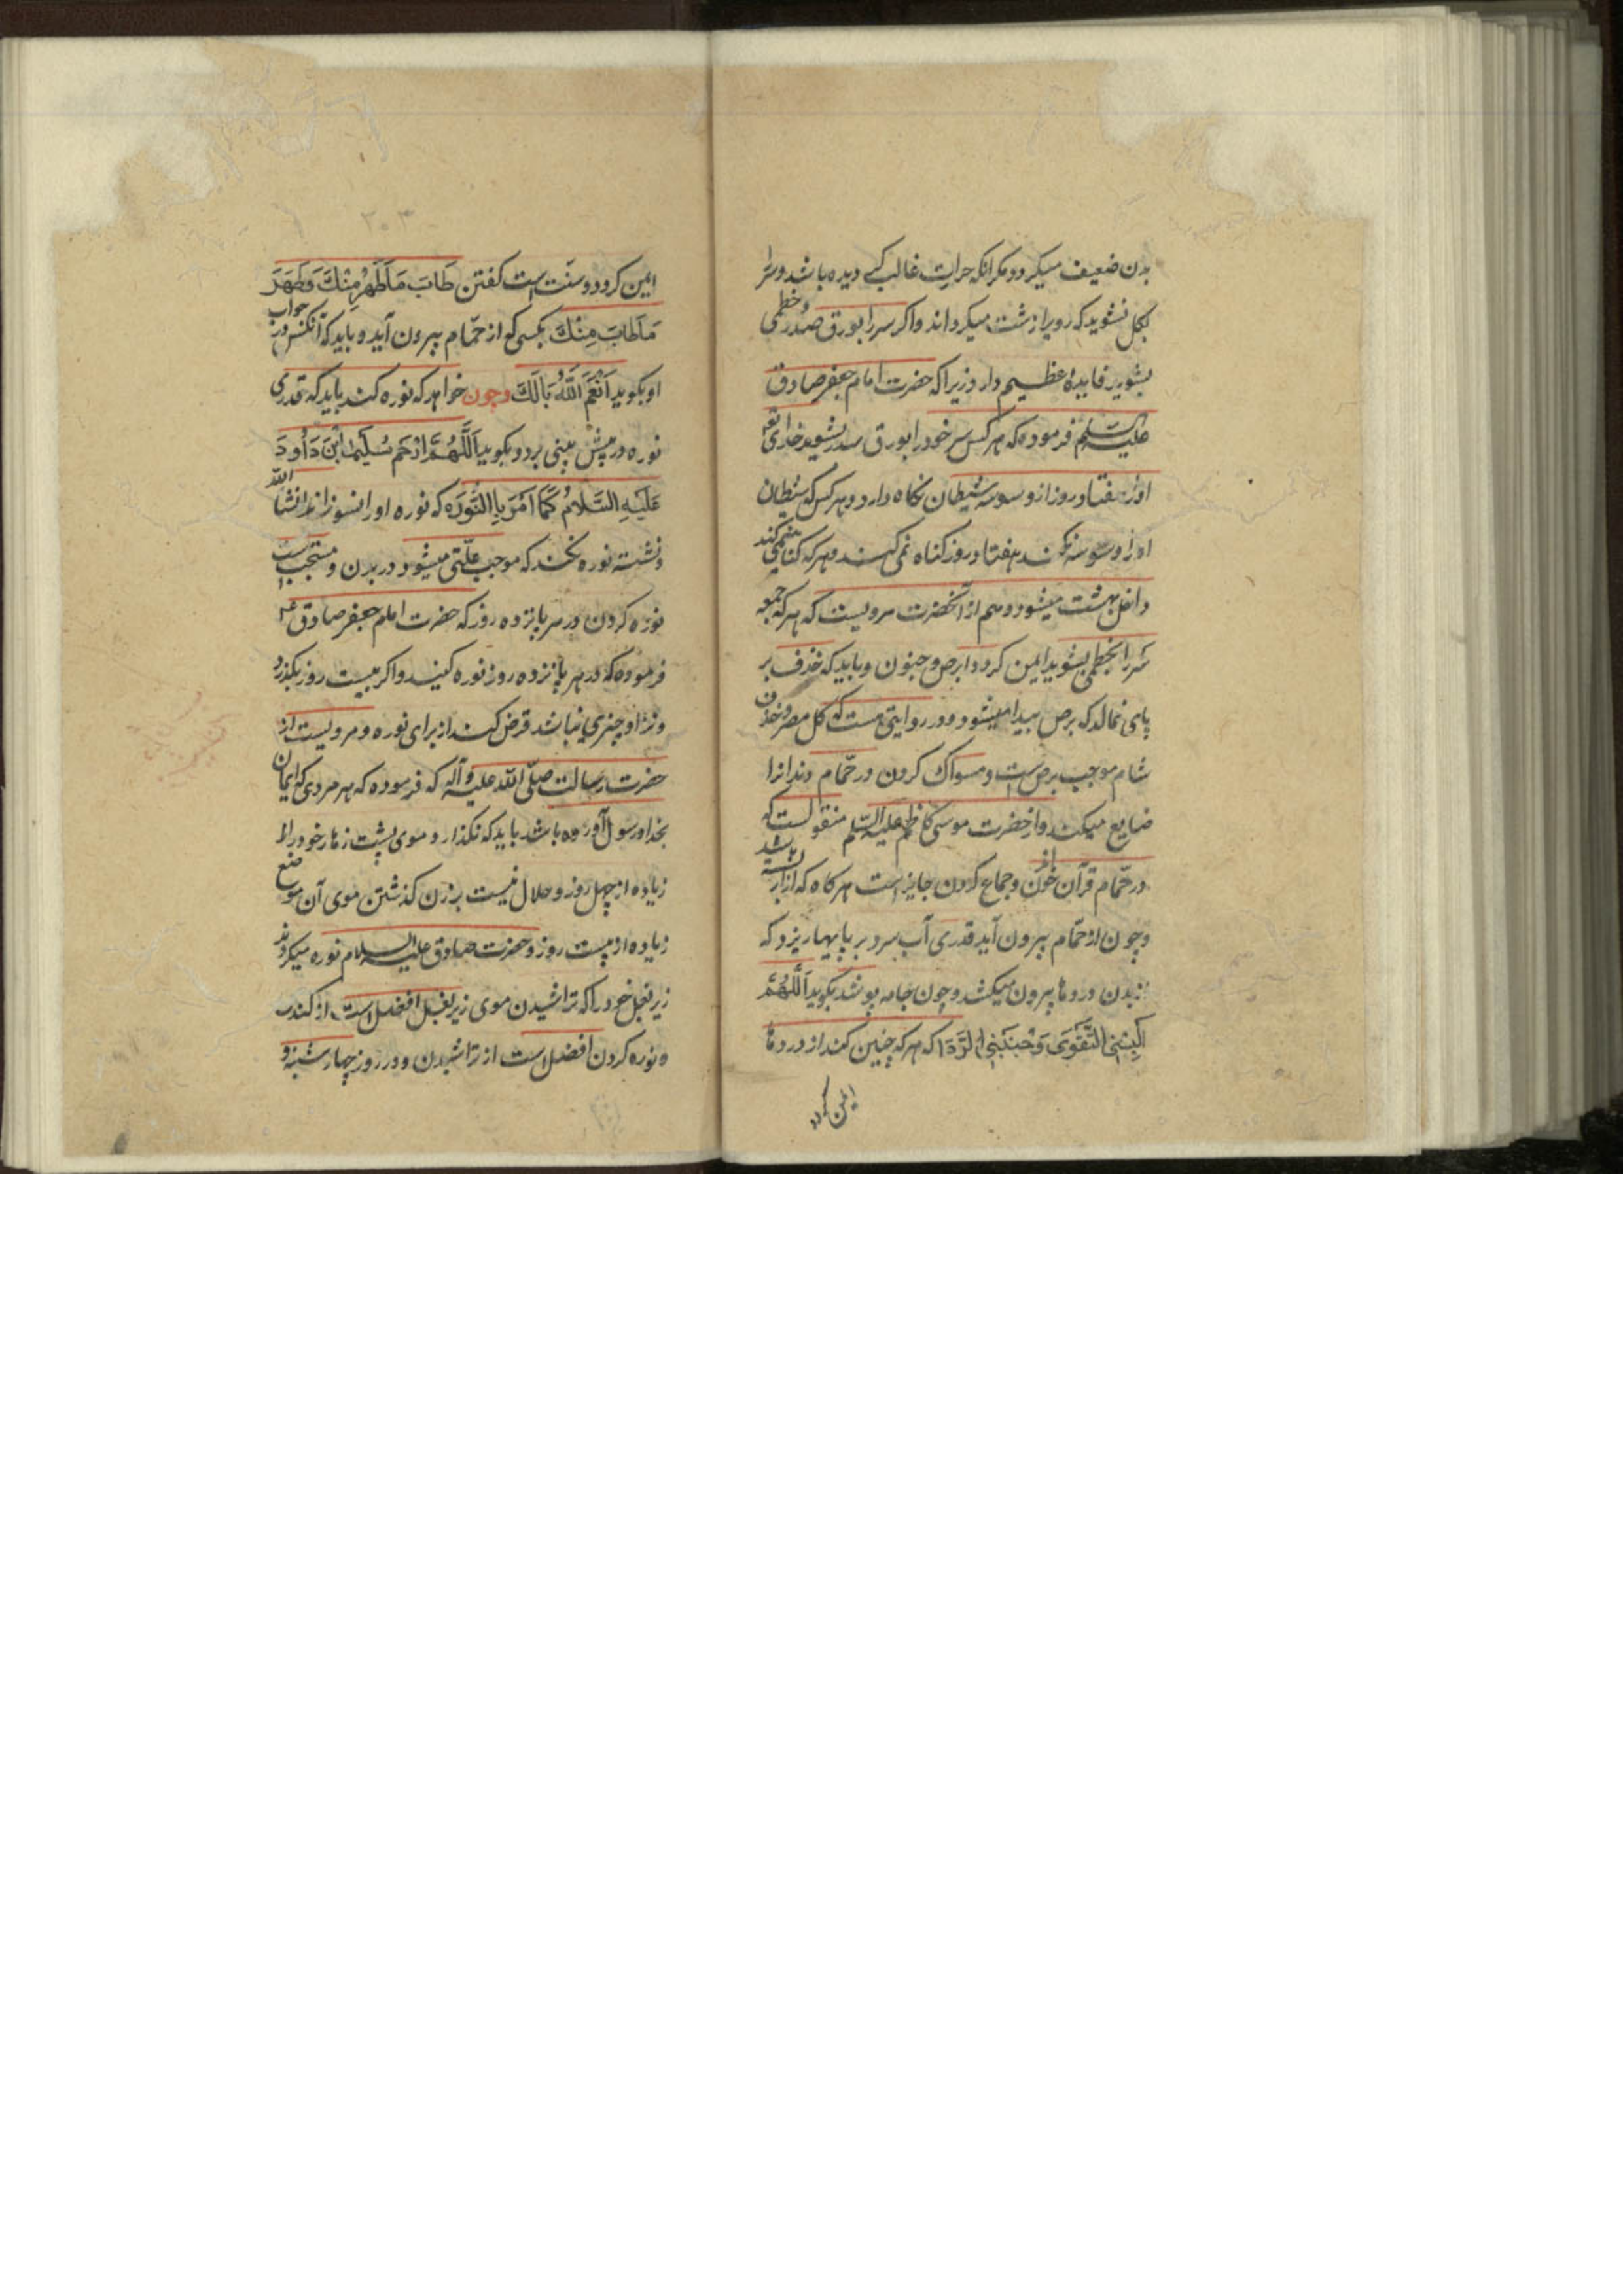 بدن ضعیف میکردد مکر انکه حرارت غالب کسی دیده باشد و سر را
بکل نشوید که رویرا زشت میکرداند و اکر سر را بورق سدر و خطمی
بشوید فایدهٔ عظیم دارد زیرا که حضرت امام جعفر صادق
علیه السلم فرموده که هر کس سر خود را بورق سدر بشوید خدای تع
اورا هفتاد روز از وسوسه شیطان نکاه دارد و هر کس که شیطان
اورا وسوسه نکند هفتاد روز کناه نمی کند و هر که کناه نمی کند
داخل بهشت میشود و هم از آنحضرت مرویست که هر که جمعه
سر را بخطمی بشوید ایمن کردد از برص و جنون و باید که خذف بر
پای نمالد که برص پیدا میشود و در روایتی هست که کل مصر و خذف
شام موجب برص است و مسواک کردن در حمّام دندانرا
ضایع میکند و از حضرت موسی کاظم علیه السلم منقولست که
در حمّام قرآن خواندن و جماع کردن جایز است هر کاه که ازار بسته باشد
و چون از حمّام بیرون آید قدری آب سرد بر پایها ریزد که
از بدن دردها بیرون میکشد و چون جامه پوشد بکوید اَللّهُمَّ
اَلبِسْنِی التَّقوَی وَجَنِّبْنِی الرَّدَا که هر که چنین کند از دردها
ایمن کردد
۲۰۳
ایمن کردد و سنّت است کفتن طَابَ مَاطَهُرَ مِنْكَ وَطَهَرَ
مَاطَابَ مِنْكَ بکسی که از حمّام بیرون آید و باید که آنکس در جواب
او بکوید اَنْعَمَ اللّٰهُ بَالَكَ و چون خواهد که نوره کند باید که قدری
نوره در پیش بینی برد و بکوید اَللّٰهُمَّ ارْحَمْ سُلَیمٰانَ ابْنَ دَاوُدَ
عَلَیْهِ السَّلامُ کَمَا اَمَرَ بِالنُّورَه که نوره اورا نسوزاند انشا الله
و نشسته نوره نکند که موجب علّتی میشود در بدن و مستحب است
نوره کردن در هر پانزده روز که حضرت امام جعفر صادق ع
فرموده که در هر پانزده روز نوره کنید و اکر بیست روز بکذرد
و نزد او چیزی نباشد قرض کند از برای نوره و مرویست از
حضرت رسالت صلّی الله علیه و آله که فرموده که هر مردی که ایمان
بخدا و رسول آورده باشد باید که نکذارد موی پشت زهار خود را
زیاده از چهل روز و حلال نیست بر زن کذشتن موی آن موضع
زیاده از بیست روز و حضرت صادق علیه السلام نوره میکردند
زیر بغل خود را که تراشیدن موی زیر بغل افضل است از کندن
و نوره کردن افضل است از تراشیدن و در روز چهار شنبه و